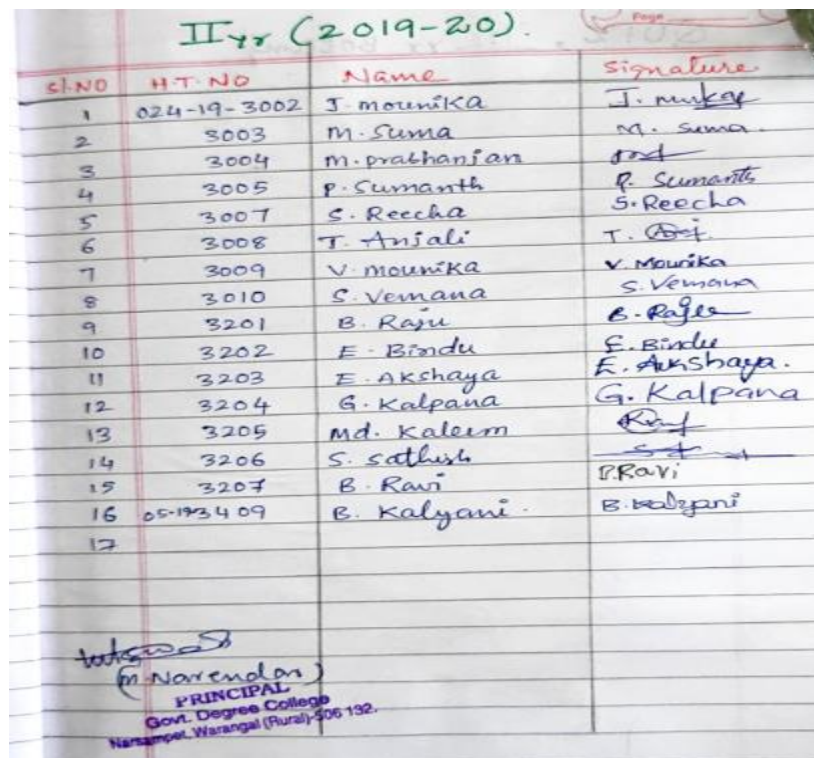 II yr (2019-20).
Page
Sl.NO H.T. NO Name Signature
1 024-19-3002 J. mounika J.
2 3003 M. Suma M. Suma.
3 3004 m. prabhanjan
4 3005 P. Sumanth P. Sumanth
5 3007 S. Reecha S. Reecha
6 3008 T. Anjali T.
7 3009 V. mounika V. Mounika
8 3010 S. Vemana S. Vemana
9 3201 B. Raju B. Raju
10 3202 E. Bindu E. Bindu
11 3203 E. Akshaya E. Akshaya.
12 3204 G. Kalpana G. Kalpana
13 3205 Md. Kaleem
14 3206 S. Sathish
15 3207 B. Ravi B.Ravi
16 B. Kalyani. B. Kalyani
17
(M Narendar)
PRINCIPAL
Govt. Degree College
Narsampet, Warangal (Rural)-506 132.